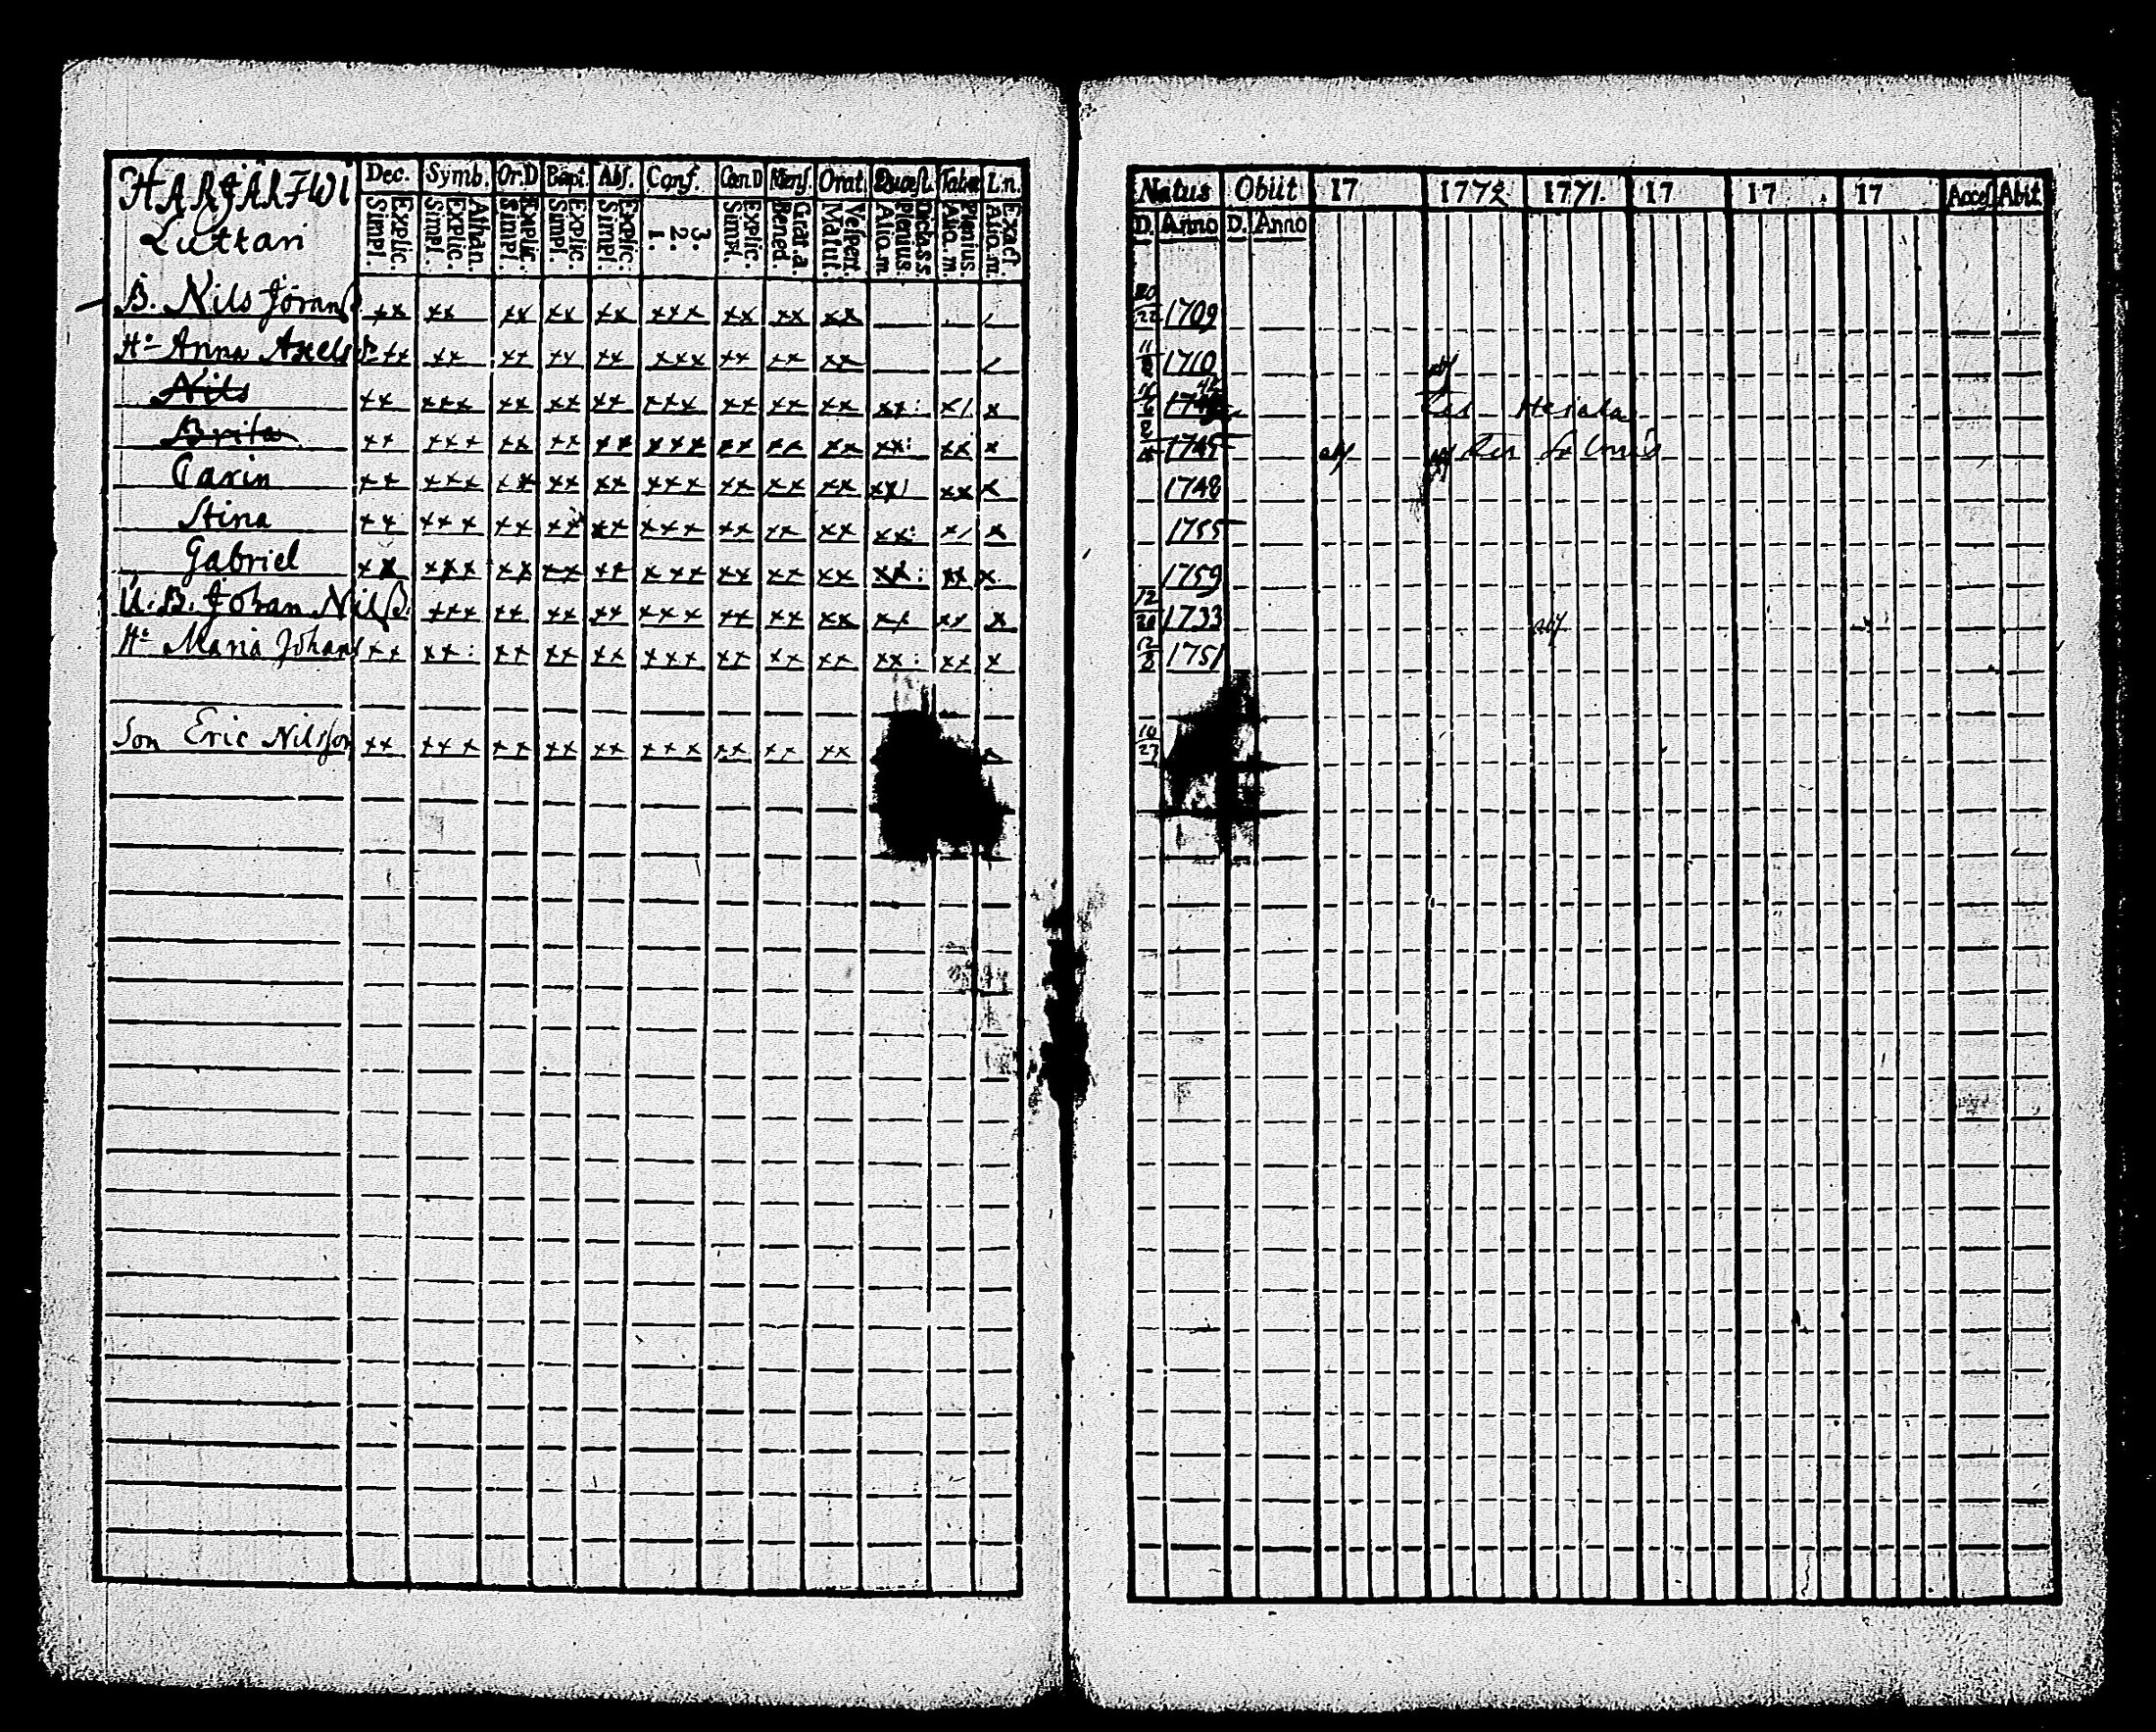 HARJÄRFWI
Luttari
Dec. Symb. Or.D Bapt. Abs. Conf. Cœn.D Mens. Orat. Quæst. Tabæ L.n.
Explic. Simpl. Athan. Explic. Simpl. Explic. Simpl. Explic. Simpl. Explic. Simpl. 3. 2. 1. Explic. Simpl. Grat. a. Bened. Vespert. Matut. Dicta s.s. Plenius. Aliq. m. Plenius. Aliq. m. Exact. Aliq. m.
B. Nils Jöranß. xx xx xx xx xx xxx xx xx xx
Hu Anna Axels xx xx xx xx xx xxx xx xx xx
Nils xx xxx xx xx xx xxx xx xx xx xx: x/ x
Brita xx xxx xx xx xx xxx xx xx xx xx: xx x
Carin xx xxx xx xx xx xxx xx xx xx xx/ xx x
Stina xx xxx xx xx xx xxx xx xx xx xx: x/ x
Gabriel xx xxx xx xx xx xxx xx xx xx xx: xx x
U. B. Johan Nilß. xxx xx xx xx xxx xx xx xx xx xx x
Hu Maria Johans xx xx: xx xx xx xxx xx xx xx xx: xx x
Son Eric Nilsson xx xxx xx xx xx xxx xx xx xx
Natus Obiit 17 1772 1771. 17 17 17 Access. Abit
D. Anno D. Anno
1709
11 1710
Heiala
1745
1748
1755
1759
12/20 1733
12 1751
10/27